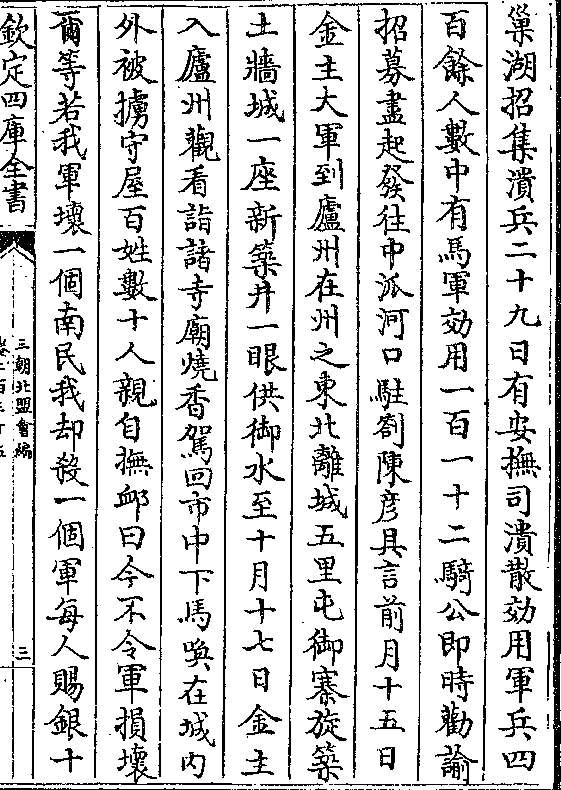 巢湖招集潰兵二十九日有安撫司潰散効用軍兵四
百餘人數中有馬軍効用一百一十二騎公即時勸諭
招募盡起發往中派河口駐劄陳彦具言前月十五日
金主大軍到廬州在州之東北離城五里屯御寨旋築
土牆城一座新築井一眼供御水至十月十七日金主
入廬州觀看詣諸寺廟燒香駕回市中下馬喚在城内
外被擄守屋百姓數十人親自撫邺曰今不令軍損壞
爾等若我軍壞一個南民我却殺一個軍每人賜銀十
欽定四庫全書
三朝北盟會編
卷二百三十五
三